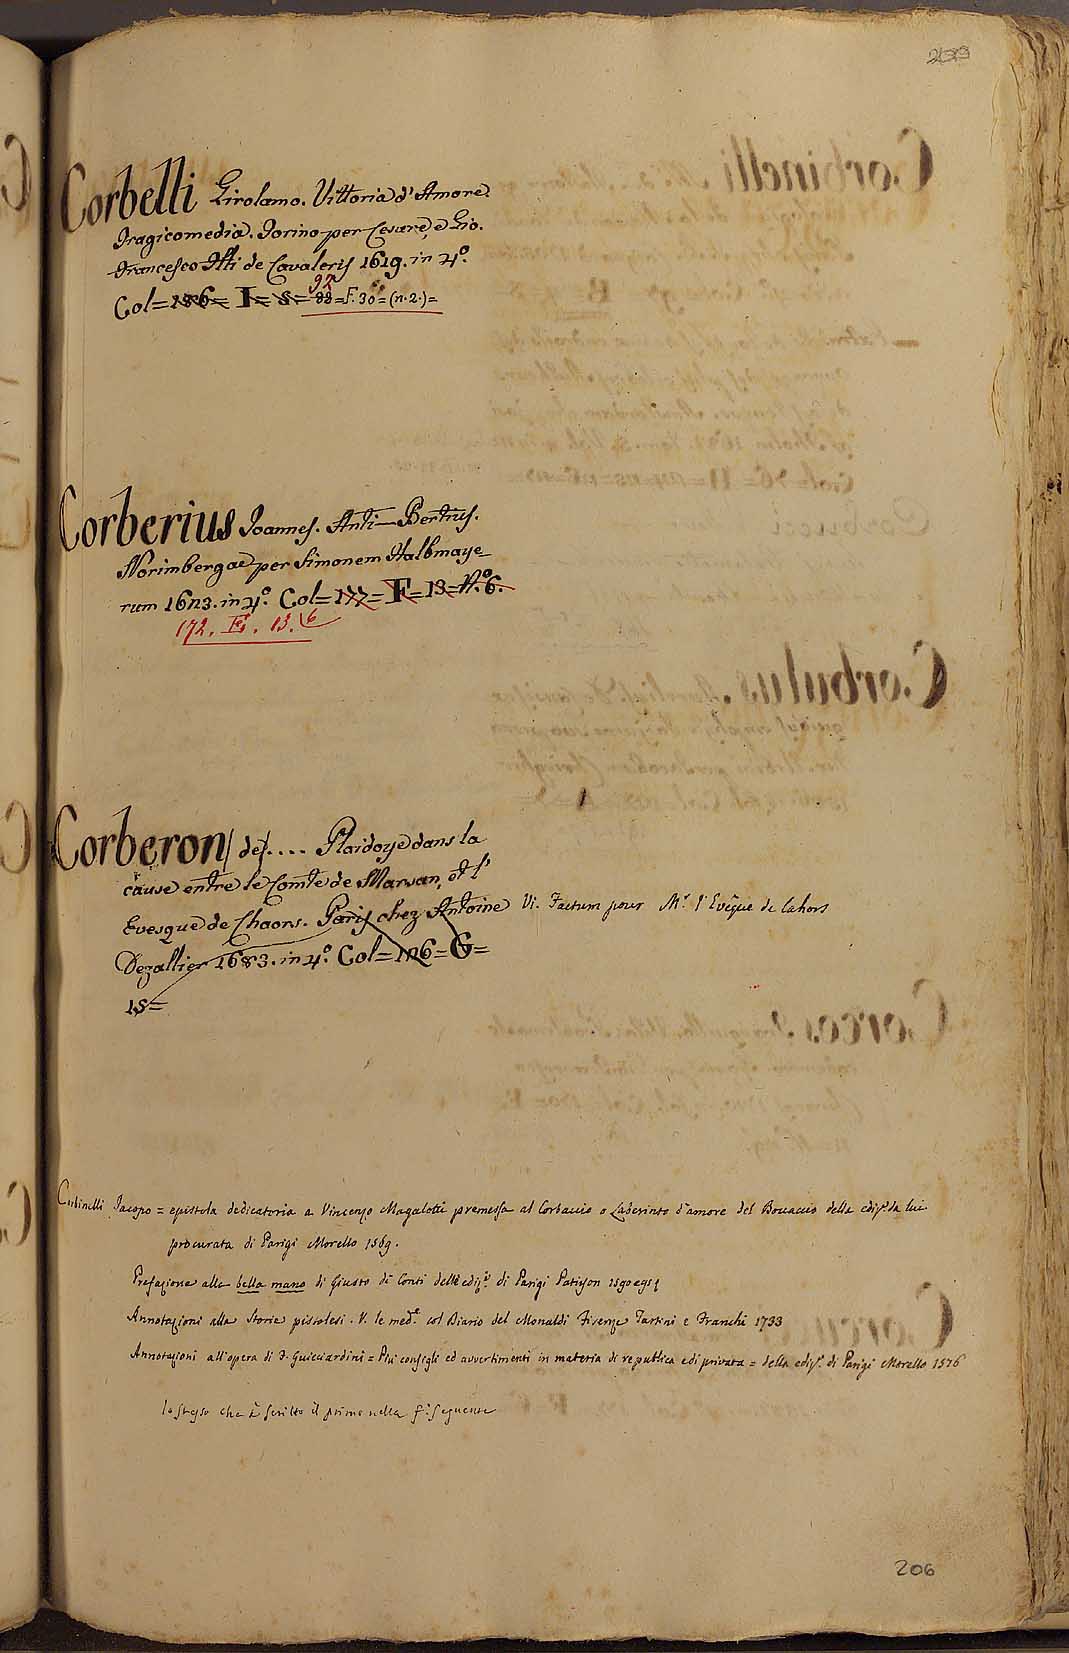 Corbelli Girolamo. Vittoria d'Amore.
Tragicomedia. Torino per Cesare, e Gio.
Francesco Ffli de Cavalerij 1619. in 4.º
92
Col= 186= I= 8= 88=F. 30=(n.2.)=
Corberius Joannes. Anti-Bertius.
Norimbergae per Simonem Halbmaye-
rum 1623. in 4.º Col= 177= F= 13= N.º 6.
172. F. 13. 6
Corberon (de).... Plaidoye dans la
cause entre le Comte de Marsan, et l'
Evesque de Chaors. Paris chez Antoine
Vi. Factum pour Mr. l'Evêque de Cahors
Dezallier 1683. in 4.º Col= 126= G=
15=
Corbinelli Jacopo = epistola dedicatoria a Vincenzo Magalotti premessa al Corbaccio o Laberinto d'amore del Boccaccio della ediz.e da lui
procurata di Parigi Morello 1569.
Prefazione alla bella mano di Giusto de Conti dell ediz.e di Parigi Patisson
Annotazioni alla Storie pistolesi. V. le med.e col Diario del Monaldi Firenze Tartini e Franchi 1733
Annotazioni all'opera di F. Guicciardini = Piu consigli ed avvertimenti in materia di republica e di privata = della ediz.e di Parigi Morello 1576
lo stesso che è scritto il primo nella f.a seguente
206